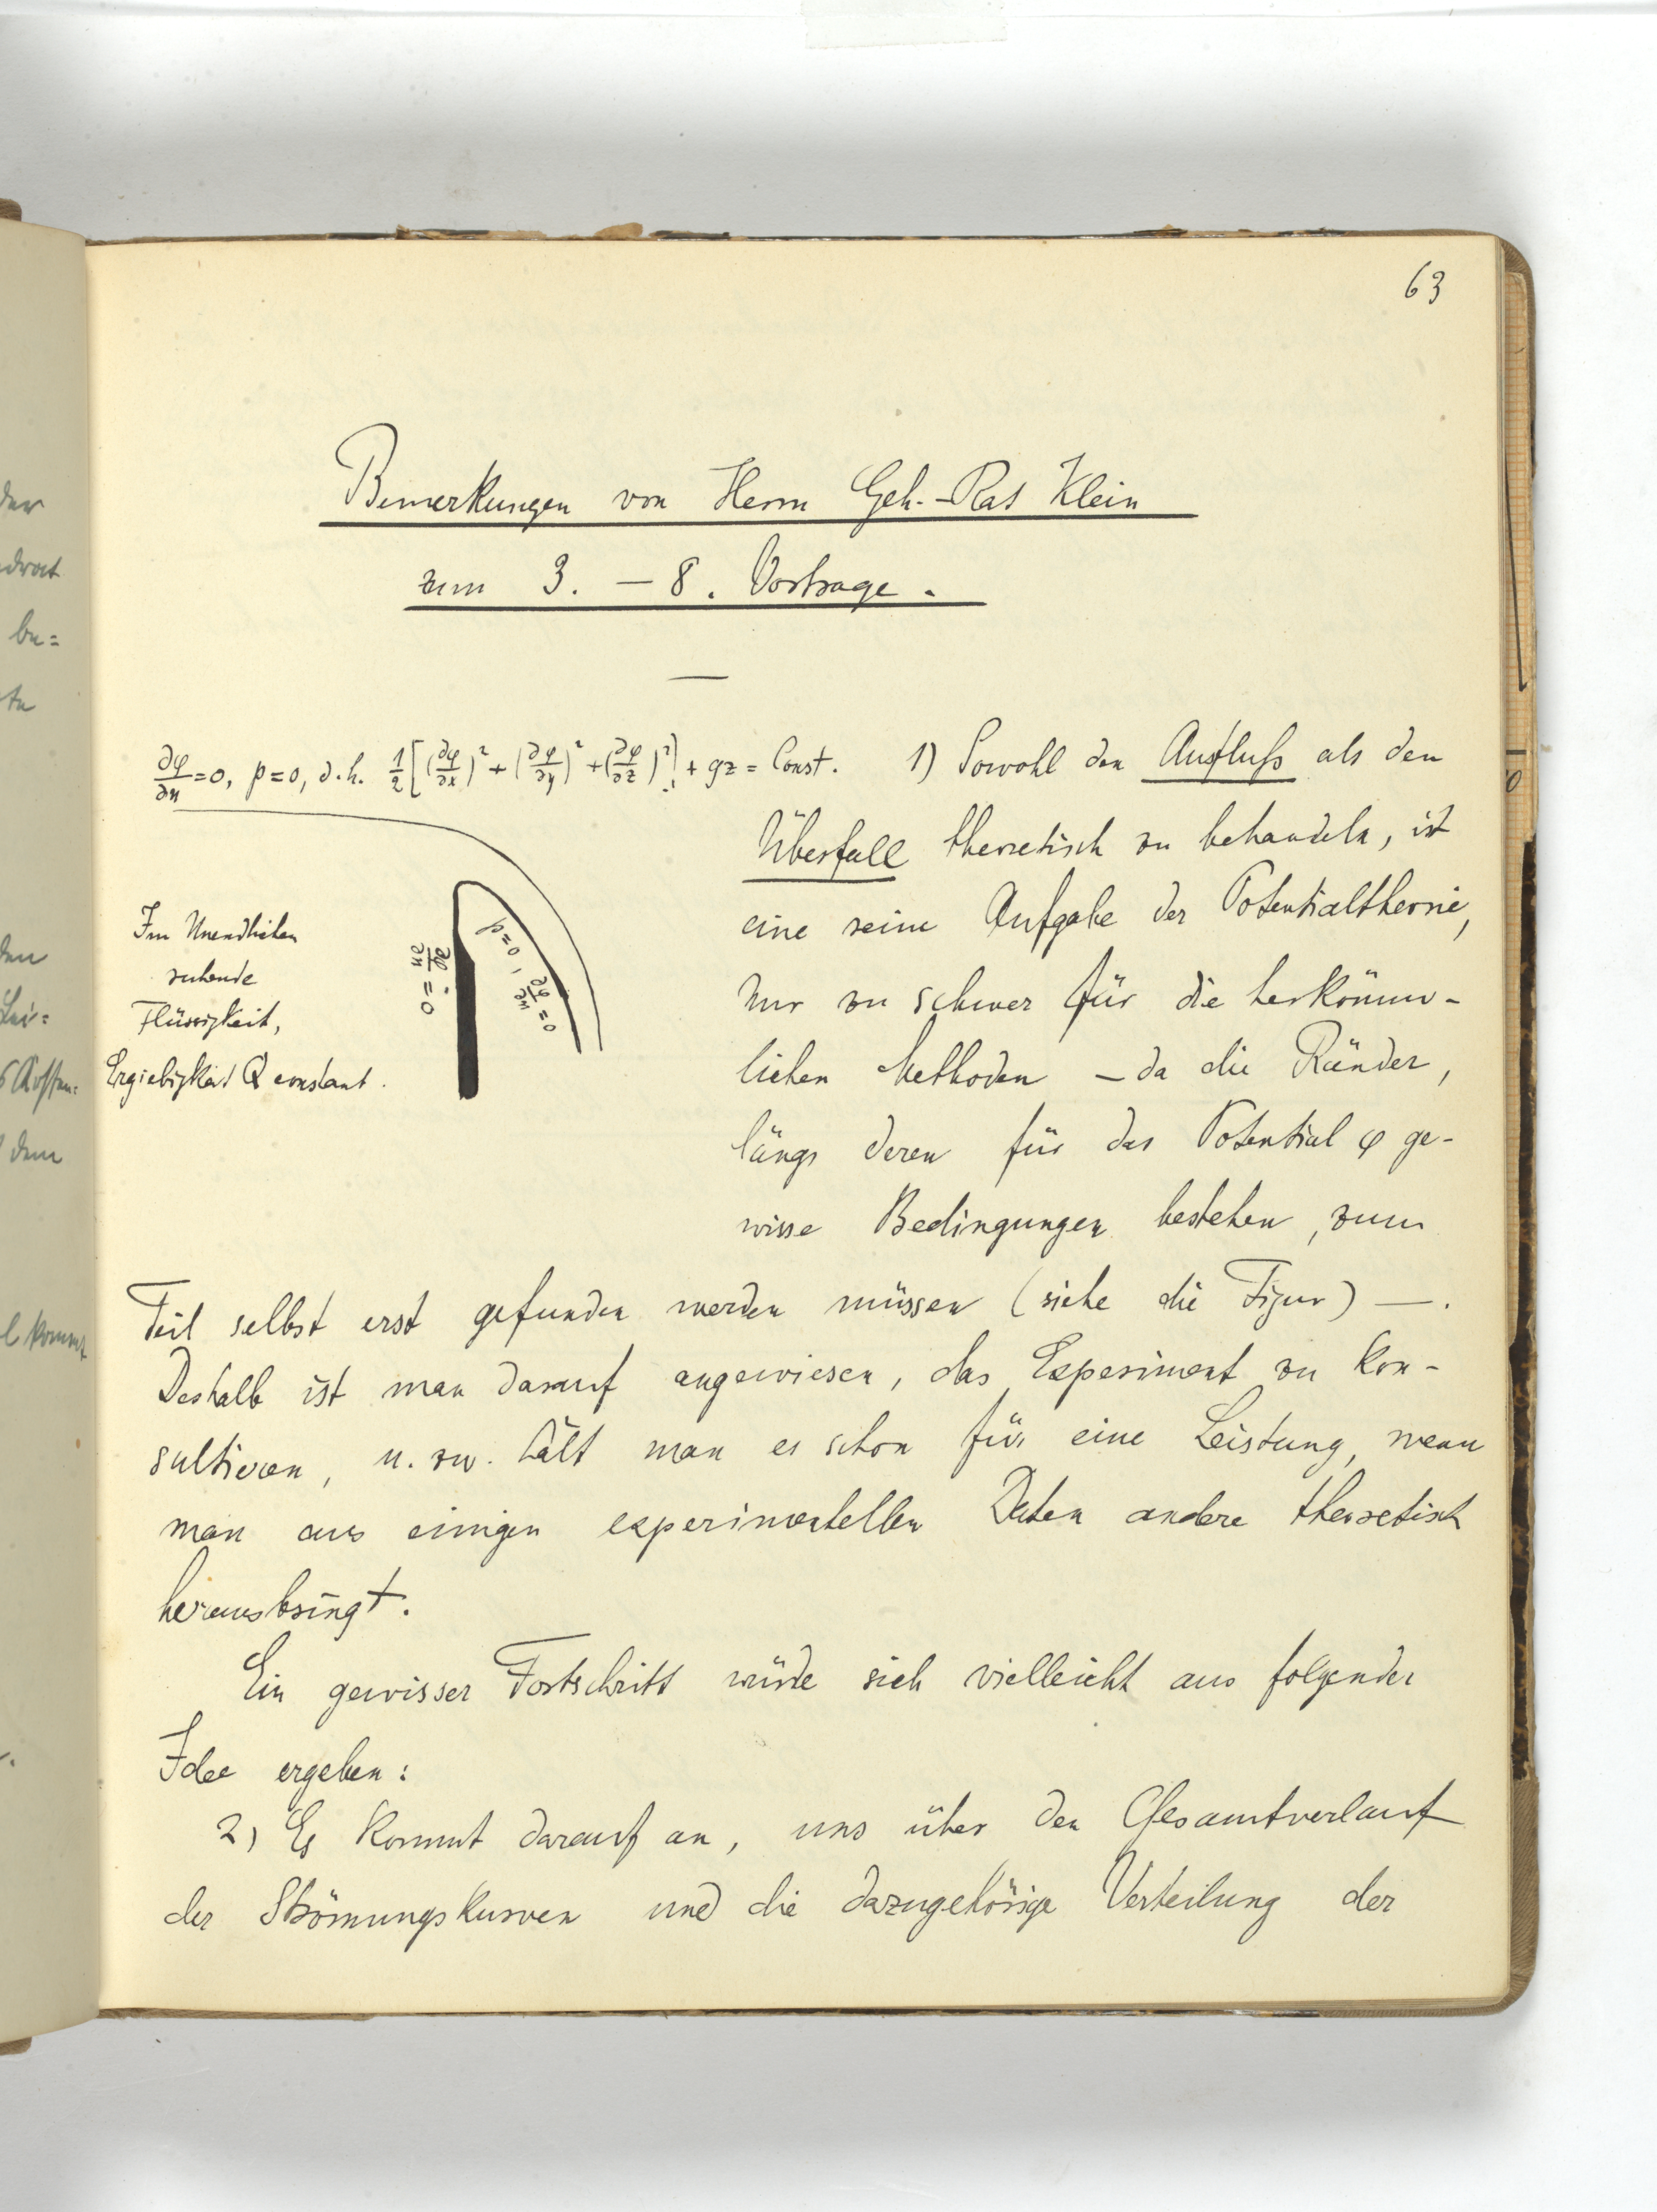 63
Bemerkungen von Herrn Geh.-Rat Klein
zum 3. – 8. Vortrage.
∂φ/∂n = 0, p = 0, d.h. 1/2[(∂φ/∂x)² + (∂φ/∂y)² + (∂φ/∂z)²] + gz = Const.
Im Unendlichen
ruhende
Flüssigkeit,
Ergiebigkeit Q constant.
∂φ/∂n = 0
p = 0, ∂φ/∂n = 0
1) Sowohl den Ausfluß als den
Überfall theoretisch zu behandeln, ist
eine reine Aufgabe der Potentialtheorie,
nur zu schwer für die herkömm-
lichen Methoden – da die Ränder,
längs deren für das Potential φ ge-
wisse Bedingungen bestehen, zum
Teil selbst erst gefunden werden müssen (siehe die Figur) –.
Deshalb ist man darauf angewiesen, das Experiment zu kon-
sultieren, u. zw. hält man es schon für eine Leistung, wenn
man aus einigen experimentellen Daten andere theoretisch
herausbringt.
Ein gewisser Fortschritt würde sich vielleicht aus folgender
Idee ergeben:
2) Es kommt darauf an, uns über den Gesamtverlauf
der Strömungskurven und die dazugehörige Verteilung der
der
be=
den
dem
l kommt